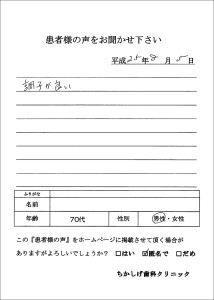 患者様の声をお聞かせ下さい
平成25年8月5日
調子が良い
ふりがな
名前
年齢 70代 性別 男性・女性
この『患者様の声』をホームページに掲載させて頂く場合が
ありますがよろしいでしょうか? □はい ☑匿名で □だめ
ちかしげ歯科クリニック